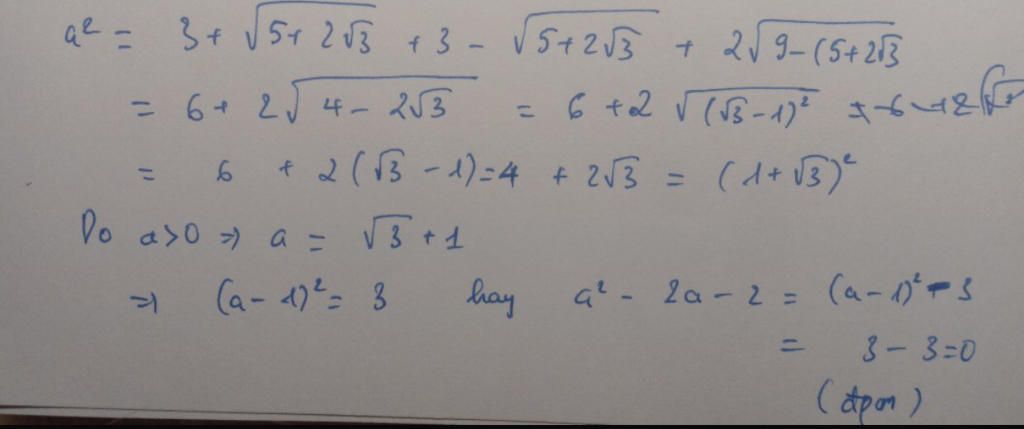 a² = 3 + √(5 + 2√3) + 3 - √(5 + 2√3) + 2√(9 - (5 + 2√3
= 6 + 2√(4 - 2√3) = 6 + 2√((√3 - 1)²)
= 6 + 2(√3 - 1) = 4 + 2√3 = (1 + √3)²
Do a > 0 ⇒ a = √3 + 1
⇒ (a - 1)² = 3 hay a² - 2a - 2 = (a - 1)² - 3
= 3 - 3 = 0
(đpcm)